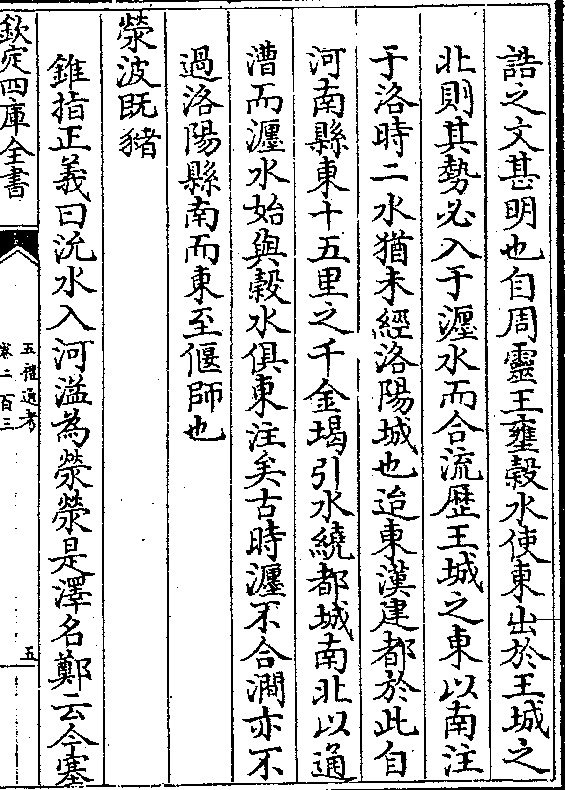 誥之文甚明也自周靈王壅榖水使東出於王城之
北則其勢必入于瀍水而合流歴王城之東以南注
于洛時二水猶未經洛陽城也迨東漢建都於此自
河南縣東十五里之千金堨引水繞都城南北以通
漕而瀍水始與榖水俱東注矣古時瀍不合澗亦不
過洛陽縣南而東至偃師也
滎波既豬
錐指正義曰沇水入河溢為滎滎是澤名鄭云今塞
欽定四庫全書
五禮通考
卷二百三
五